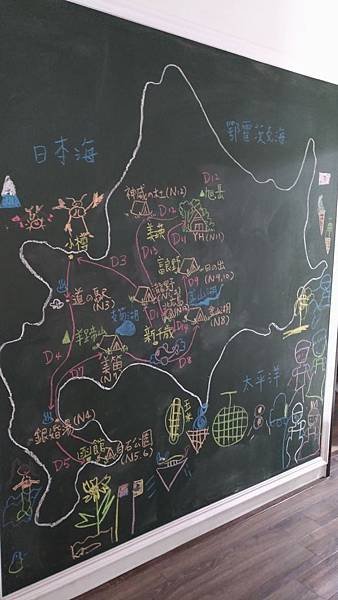 日本海
鄂霍次克海
D12
旭岳
神威の土(N12)
D13
美英
D11
YH(N11)
小樽
D3
D13
富良野
日の出
D9
(N9,10)
道の駅
(N3)
D10
金山湖
(N8)
支笏湖
新千歳
羊蹄山
D4
D7
美笛
D8
太平洋
玉米
銀婚湯(N4)
D5
函館
白石公園
(N5.6)